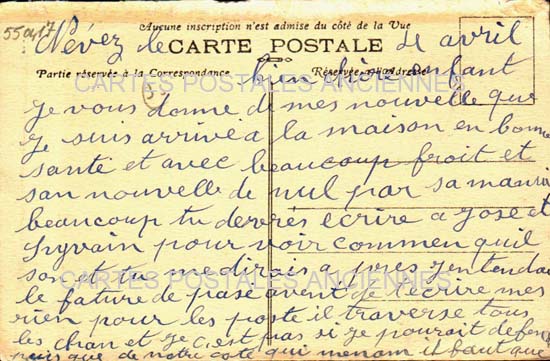 55047
Aucune inscription n'est admise du côté de la Vue
Névez le 4 avril
CARTE POSTALE
bien chère enfant
Partie réservée à la Correspondance
Réservée à l'Adresse
CARTES POSTALES ANCIENNES
je vous donne de mes nouvelle que
je suis arrivé a la maison en bonne
santé et avec beaucoup froit et
san nouvelle de nul par sa
beaucoup tu devres écrire a José et
Sylvain pour voir commen quil
son et tu me dirais a pres
CARTES POSTALES ANCIENNES
le fature de pase avent je t'ecrire mes
rien pour les poste il traverse tous
les chan et je c'est pas si je pourait
puis que de notre coté qui il faut que